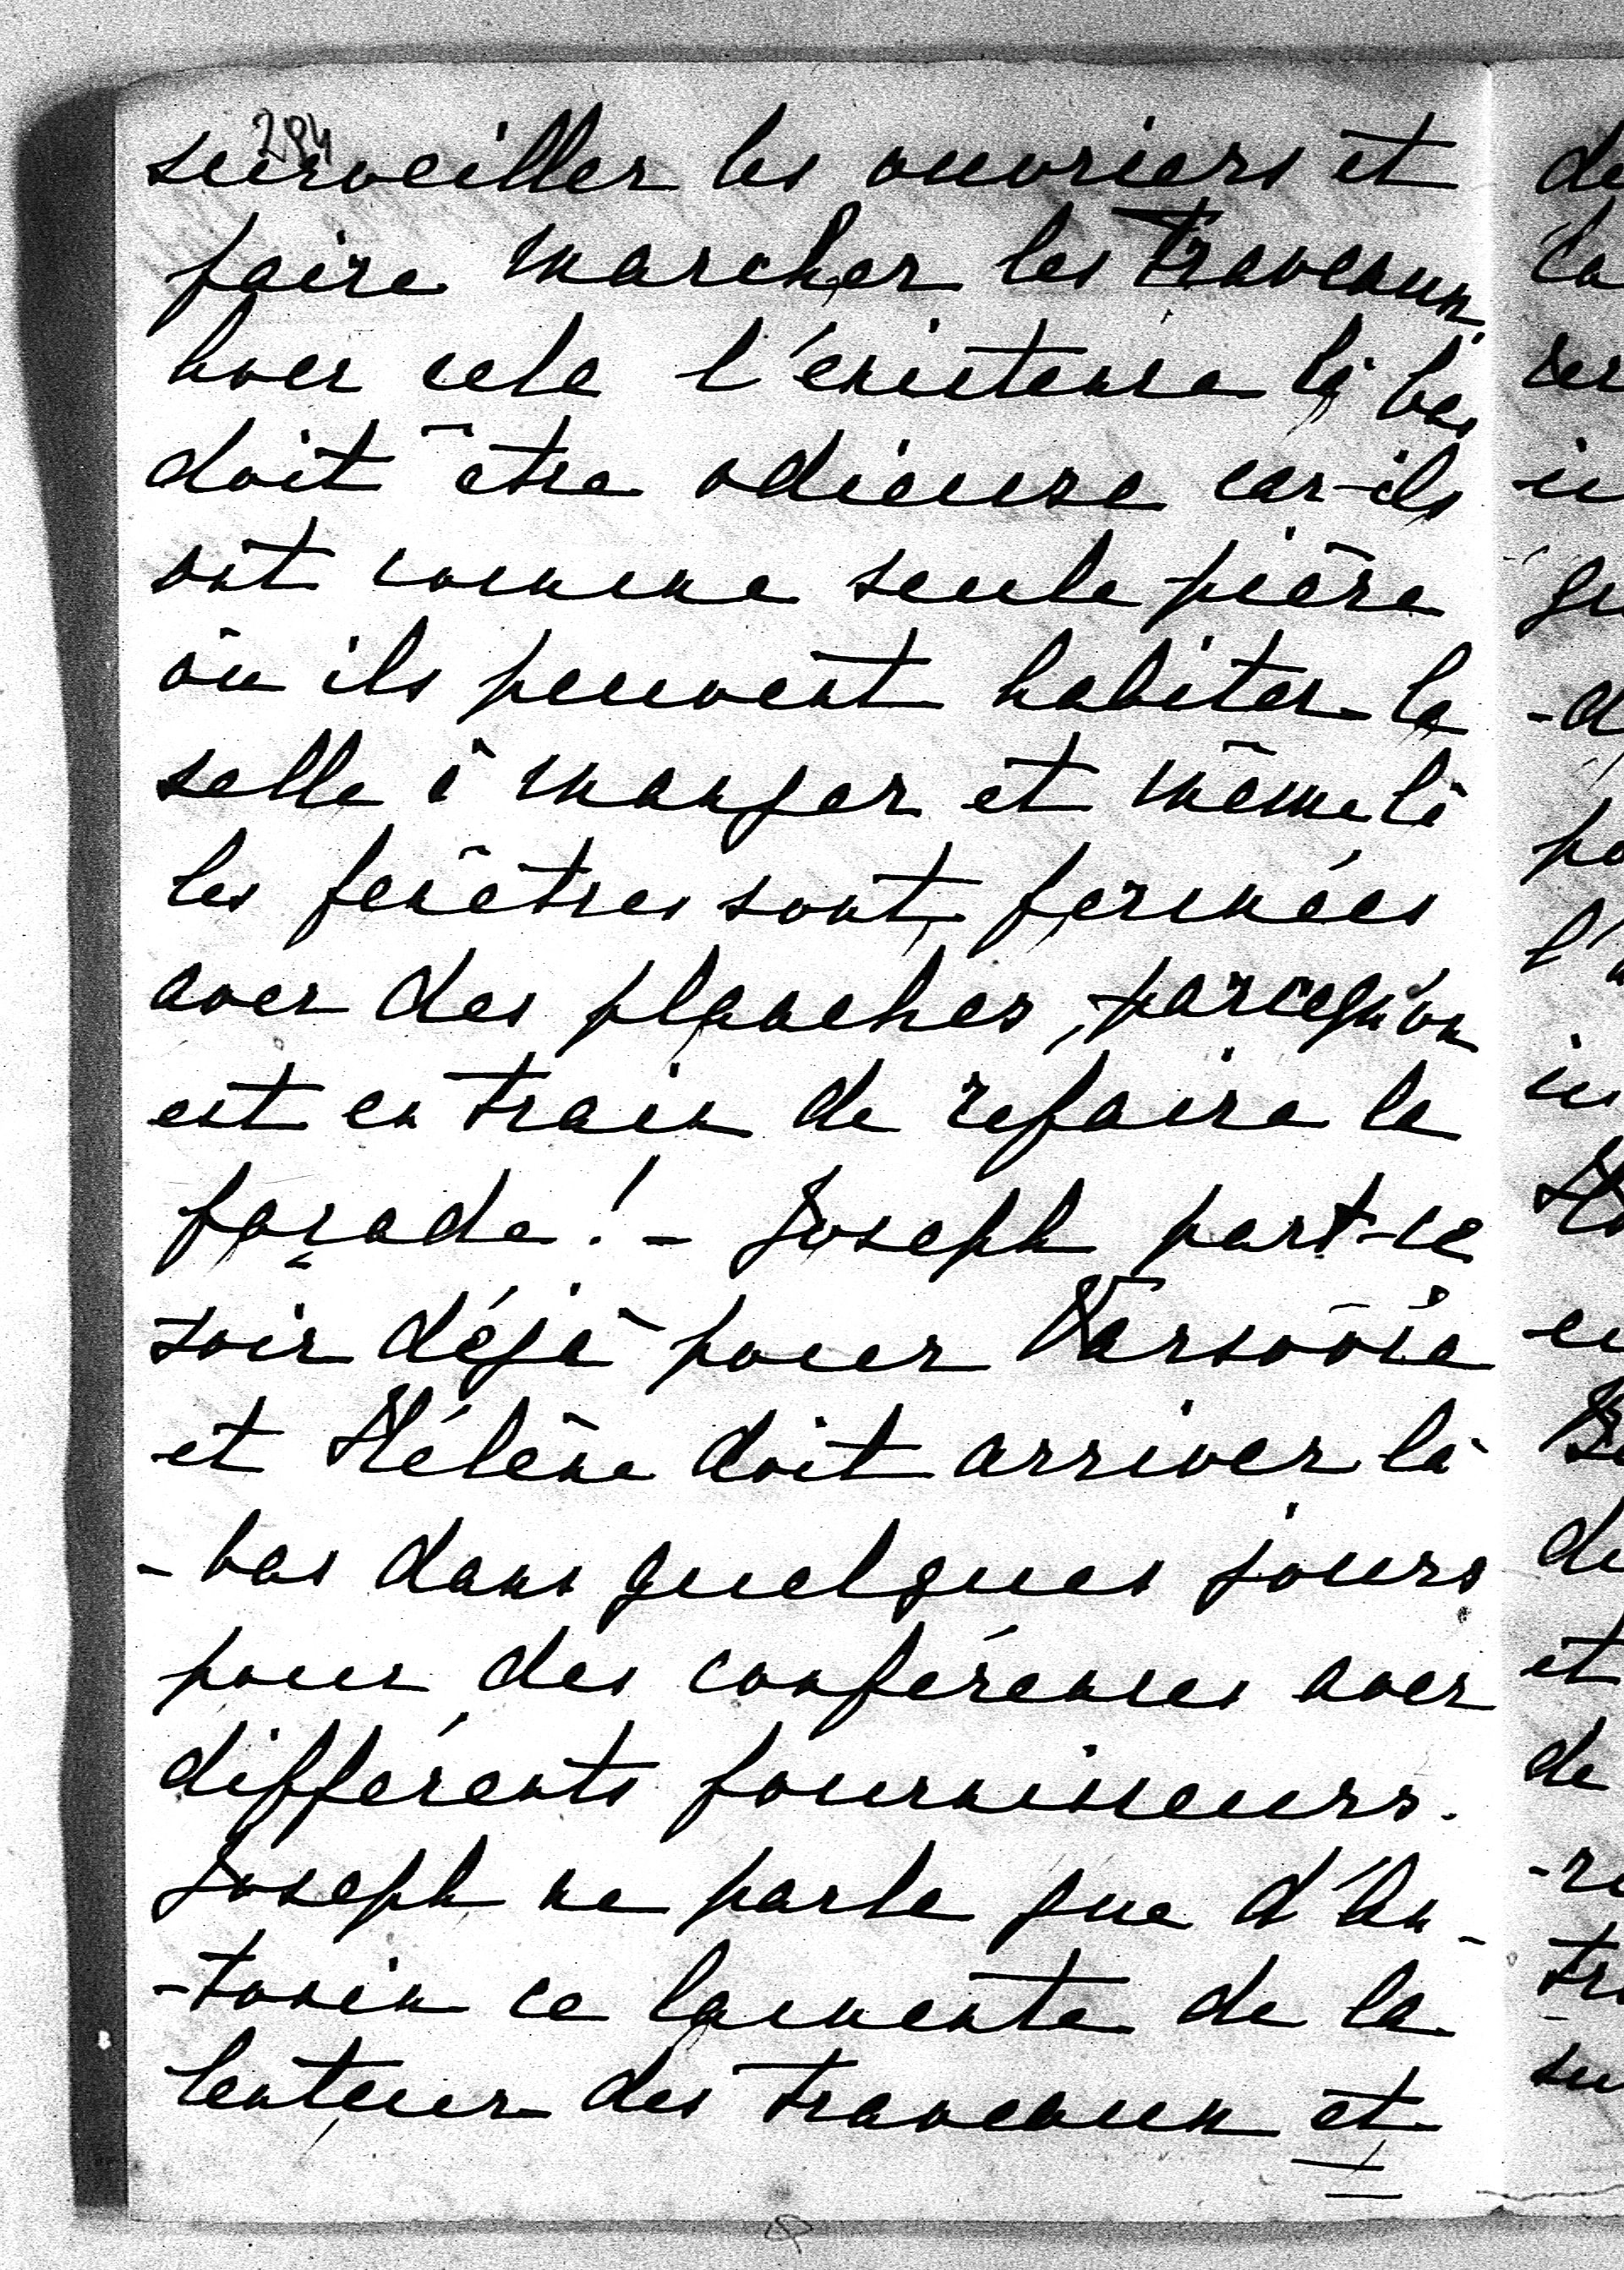 284
surveiller les ouvriers et
faire marcher les travaux,
avec cela l'existence là bas
doit être odieuse car ils
ont comme seule pièce
où ils peuvent habiter la
salle à manger et même là
les fenêtres sont fermées
avec des planches, parcequ'on
est en train de refaire la
façade! - Joseph part ce
soir déjà pour Varsovie
et Hélène doit arriver là
-bas dans quelques jours
pour des conférences avec
différents fournisseurs.
Joseph ne parle que d'An-
-tonin ce lamente de la
lenteur des travaux et